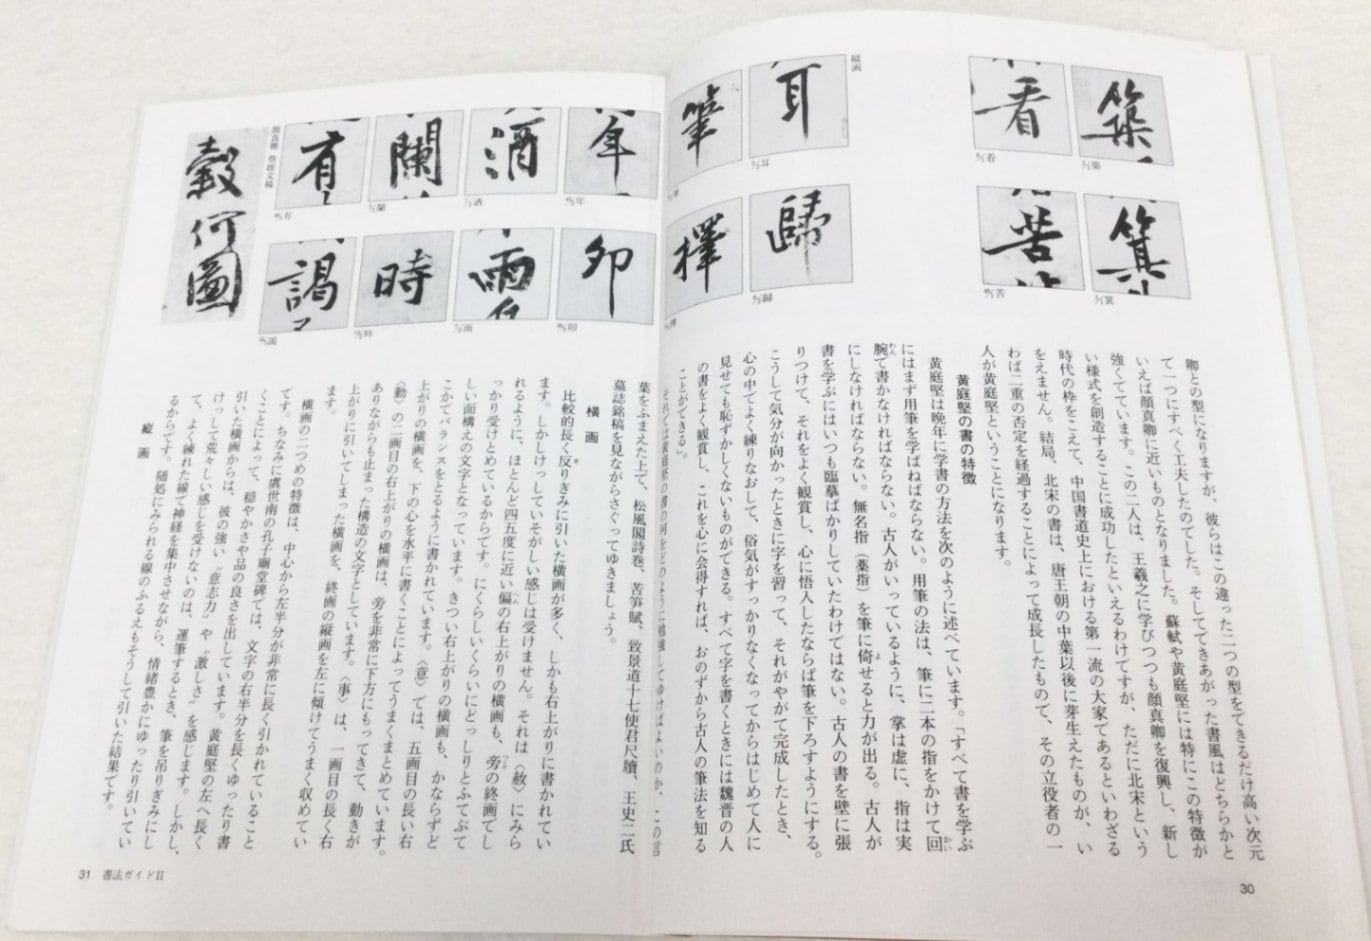 築
2/3築
看
箕
苦
縦画
耳
2/2耳
筆
歸
擇
卿との型になりますが、彼らはこの違った二つの型をできるだけ高い次元
て一つにすべく工夫したのでした。そしてできあがった書風はどちらかと
いえば顔真卿に近いものとなりました。蘇軾や黄庭堅には特にこの特徴が
強くでています。この二人は、王羲之に学びつつも顔真卿を復興し、新し
い様式を創造することに成功したといえるわけですが、ただに北宋という
時代の枠をこえて、中国書道史上における第一流の大家であるといわざる
をえません。結局、北宋の書は、唐王朝の中葉以後に芽生えたものが、い
わば二重の否定を経過することによって成長したもので、その立役者の一
人が黄庭堅ということになります。
黄庭堅の書の特徴
黄庭堅は晩年に学書の方法を次のように述べています。「すべて書を学ぶ
にはまず用筆を学ばねばならない。用筆の法は、筆に二本の指をかけて回
腕で書かなければならない。古人がいっているように、掌は虚に、指は実
にしなければならない。無名指（薬指）を筆に倚せると力が出る。古人が
書を学ぶにはいつも臨摹ばかりしていたわけではない。古人の書を壁に張
りつけて、それをよく観賞し、心に悟入したならば筆を下ろすようにする。
こうして気分が向かったときに字を習って、それがやがて完成したとき、
心の中でよく練りなおして、俗気がすっかりなくなってからはじめて人に
見せても恥ずかしくないものができる。すべて字を書くときには魏晋の人
の書をよく観賞し、これを心に会得すれば、おのずから古人の筆法を知る
ことができる」。
それでは黄庭堅の書の何をどのように勉強してゆけばよいのか、この言
30
年
酒
蘭
有
顔真卿 祭姪文稿
卯
雨
時
謁
穀何圖
葉をふまえた上で、松風閣詩巻、苦笋賦、致景道十七使君尺牘、王史二氏
墓誌銘稿を見ながらさぐってゆきましょう。
横画
比較的長く反りぎみに引いた横画が多く、しかも右上がりに書かれてい
ます。しかしけっしていそがしい感じは受けません。それは〈赦〉にみら
れるように、ほとんど四五度に近い偏の右上がりの横画も、旁の終画でし
っかり受けとめているからです。にくらしいくらいにどっしりとふてぶて
しい面構えの文字となっています。きつい右上がりの横画も、かならずど
こかでバランスをとるように書かれています。〈意〉では、五画目の長い右
上がりの横画を、下の心を水平に書くことによってうまくまとめています。
〈動〉の二画目の右上がりの横画は、旁を非常に下方にもってきて、動きが
ありながらも止まった構造の文字としています。〈事〉は、一画目の長く右
上がりに引いてしまった横画を、終画の縦画を左に傾けてうまく収めてい
ます。
横画の二つめの特徴は、中心から左半分が非常に長く引かれていること
です。ちなみに虞世南の孔子廟堂碑では、文字の右半分を長くゆったり書
くことによって、穏やかさや品の良さを出しています。黄庭堅の左へ長く
引いた横画からは、彼の強い〝意志力〟や〝激しさ〟を感じます。しかし、
けっして荒々しい感じを受けないのは、運筆するとき、筆を吊りぎみにし
て、よく練れた線で神経を集中させながら、情緒豊かにゆったり引いてい
るからです。随処にみられる線のふるえもそうして引いた結果です。
縦画
31 書法ガイドII